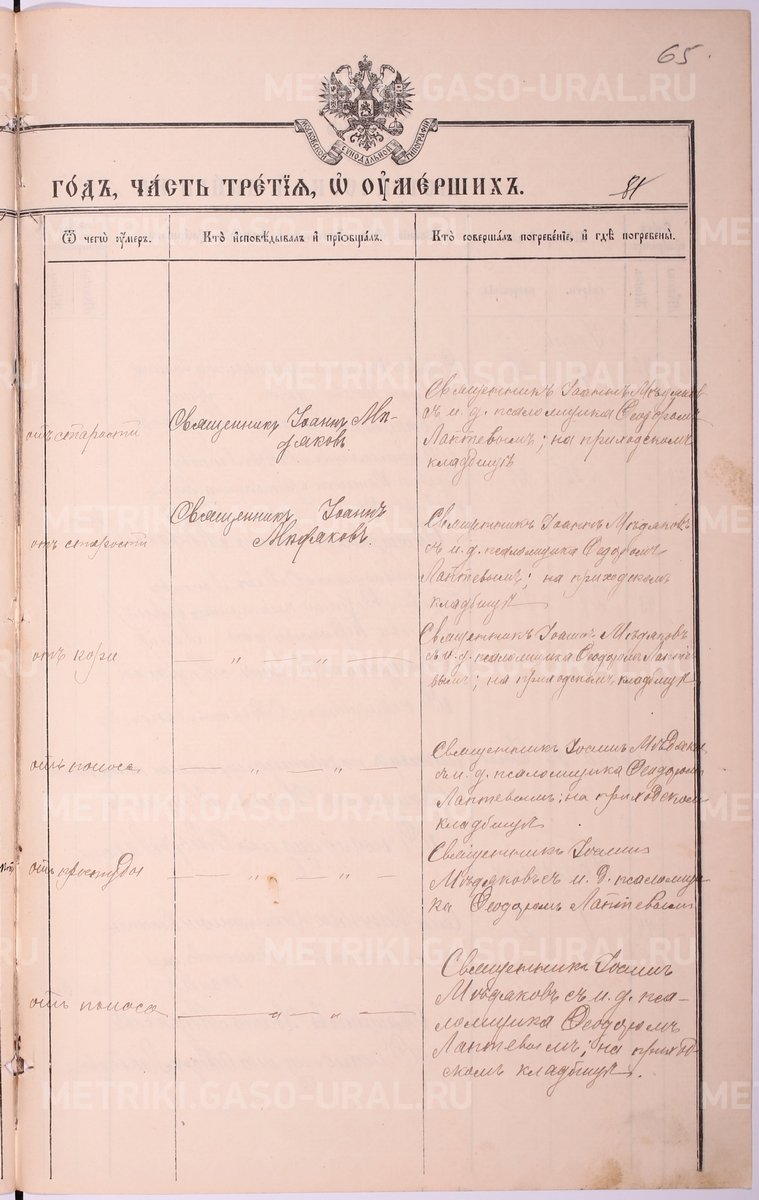 65.
METRIKI.GASO-URAL.RU
МОСКОВСКОЙ СѴНОДАЛЬНОЙ ТИПОГРАФІИ
ГО́ДЪ, ЧА́СТЬ ТРЕ́ТІѦ, Ѡ ОУМЕ́РШИХЪ.
Ѿ чегѡ̀ оу́меръ.
Кто̀ и҆сповѣ́дывалъ и҆ прїѡбща́лъ.
Кто̀ соверша́лъ погребе́нїе, и҆ гдѣ̀ погребены̀.
отъ старости
Священникъ Іоаннъ Мѣ-
дяковъ
Священникъ Іоаннъ Мѣдяковъ
съ и. д. псаломщика Ѳеодоромъ
Лаптевымъ; на приходскомъ
кладбищѣ
отъ старости
Священникъ Іоаннъ
Мѣдяковъ.
Священникъ Іоаннъ Мѣдяковъ
съ и. д. псаломщика Ѳедоромъ
Лаптевымъ; на приходскомъ
кладбищѣ
отъ кори
— „ — „ —
Священникъ Іоаннъ Мѣдяковъ
съ и. д. псаломщика Ѳеодоромъ Лапте-
вымъ; на приходскомъ кладбищѣ
отъ поноса
— „ — „ —
Священникъ Іоаннъ Мѣдяковъ
съ и. д. псаломщика Ѳеодоромъ
Лаптевымъ; на приходскомъ
кладбищѣ
отъ простуды
— „ — „ —
Священникъ Іоаннъ
Мѣдяковъ съ и. д. псаломщи-
ка Ѳеодоромъ Лаптевымъ
отъ поноса
— „ — „ —
Священникъ Іоаннъ
Мѣдяковъ съ и. д. пса-
ломщика Ѳеодоромъ
Лаптевымъ; на приход-
скомъ кладбищѣ.